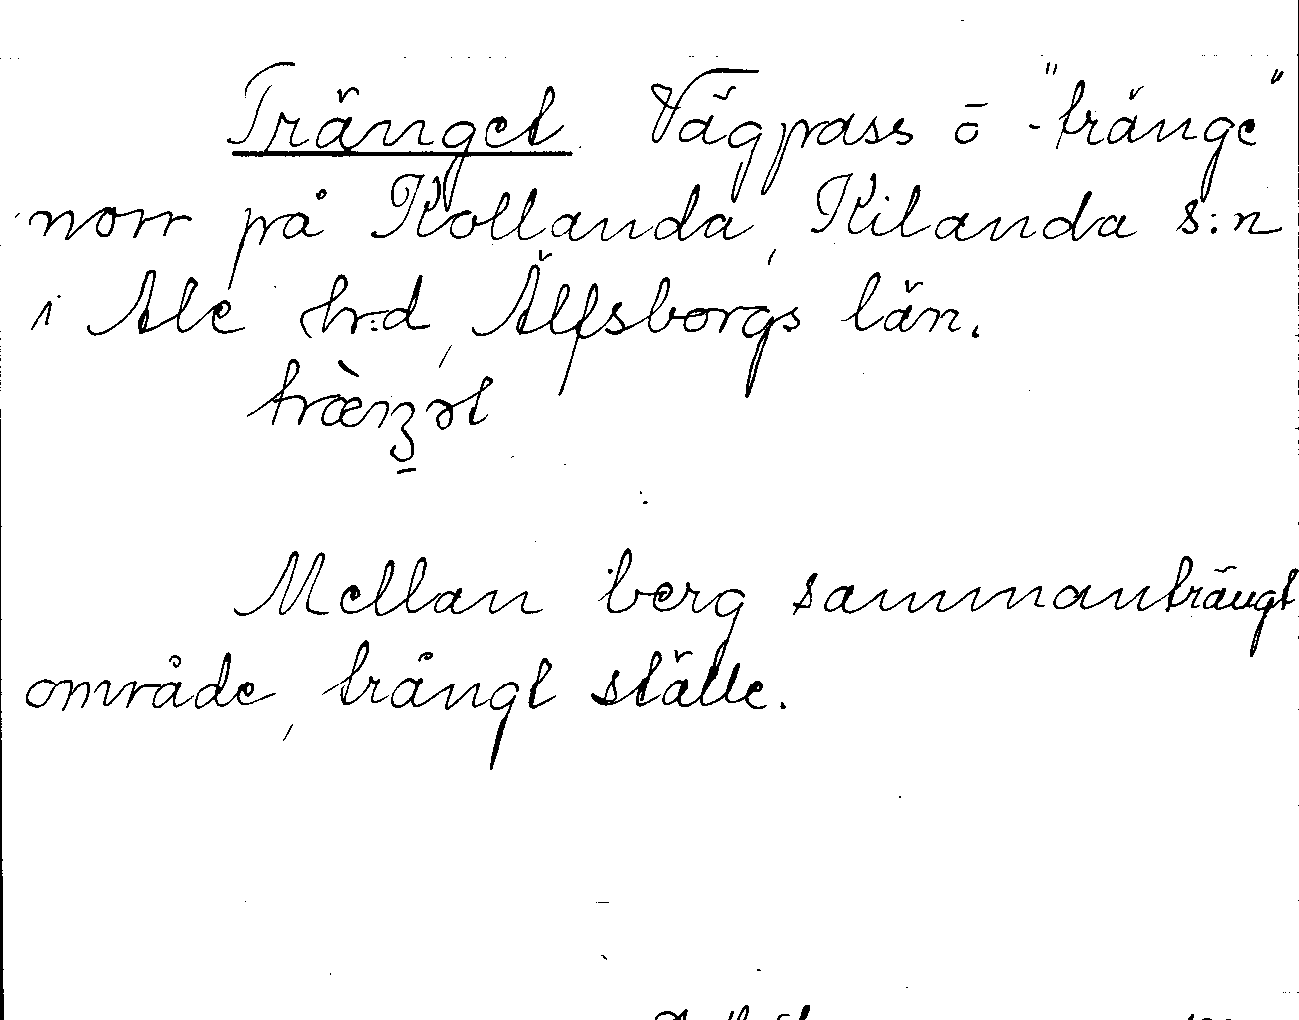 Tränget Vägpass o̅ -"tränge"
norr på Kollanda, Kilanda s:n
i Ale hrd, Älfsborgs län.
Mellan berg sammanträngt
område, trångt ställe.